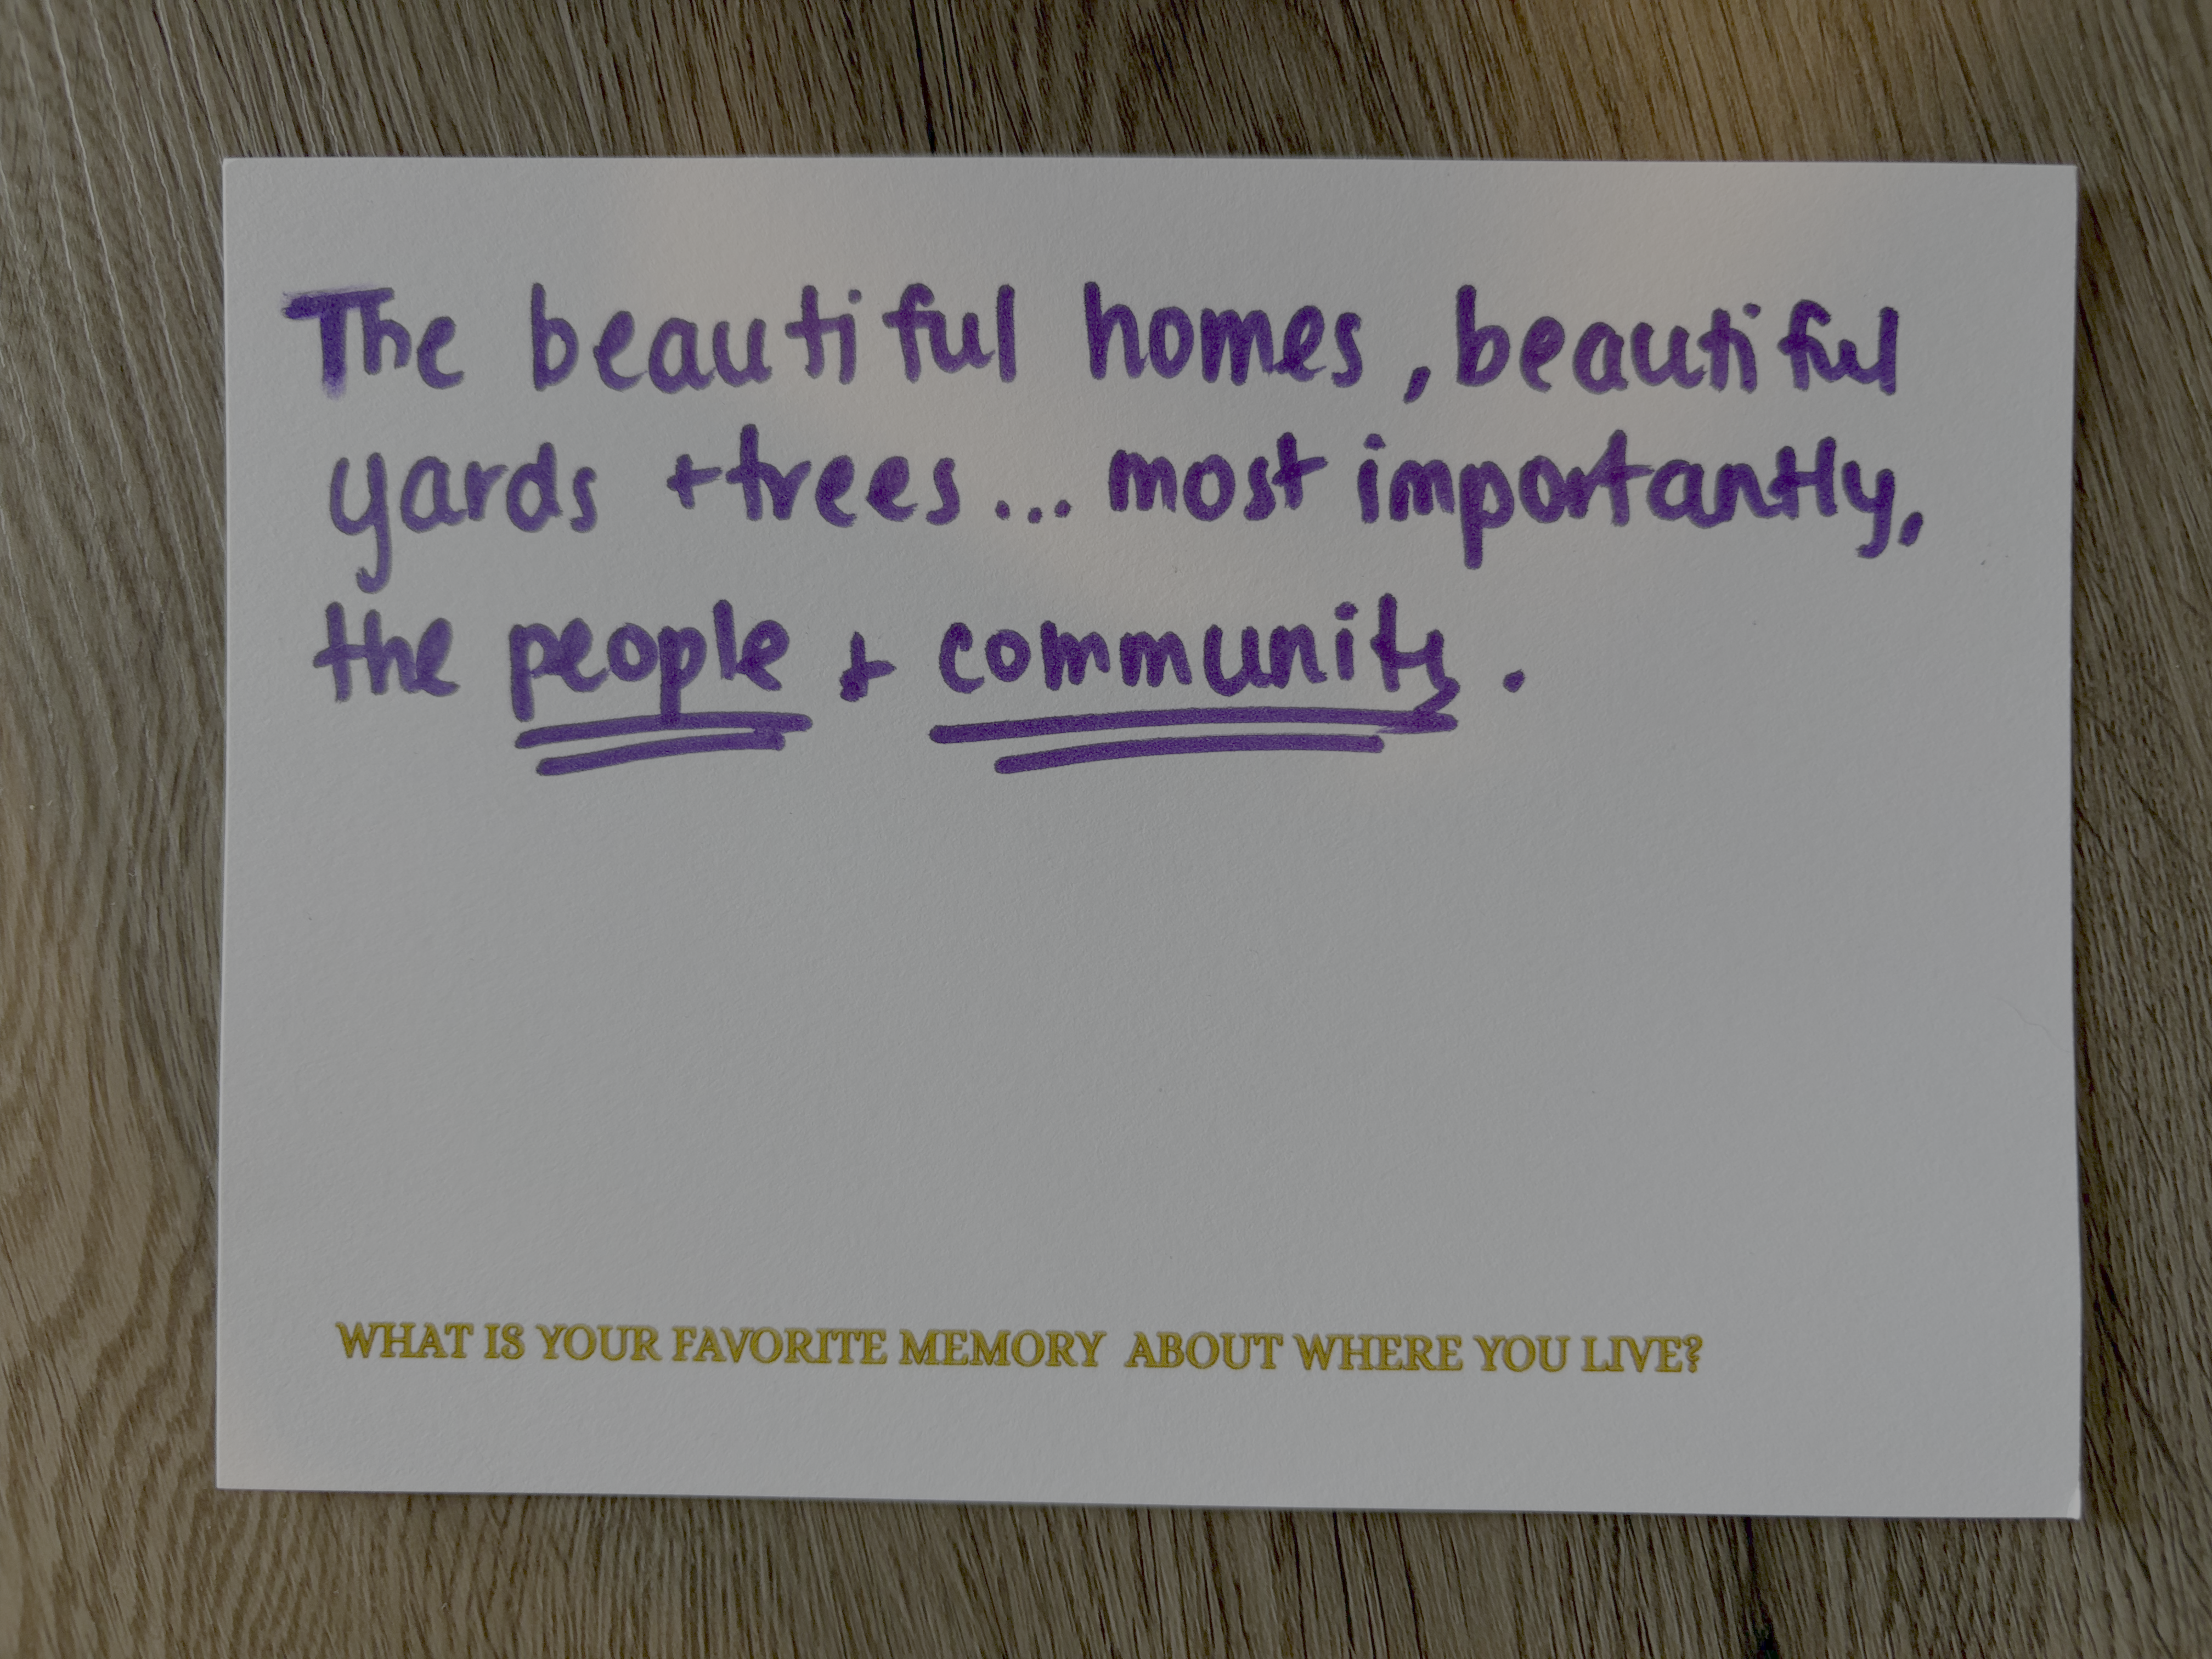 The beautiful homes, beautiful
yards + trees... most importantly,
the people + community.
WHAT IS YOUR FAVORITE MEMORY ABOUT WHERE YOU LIVE?